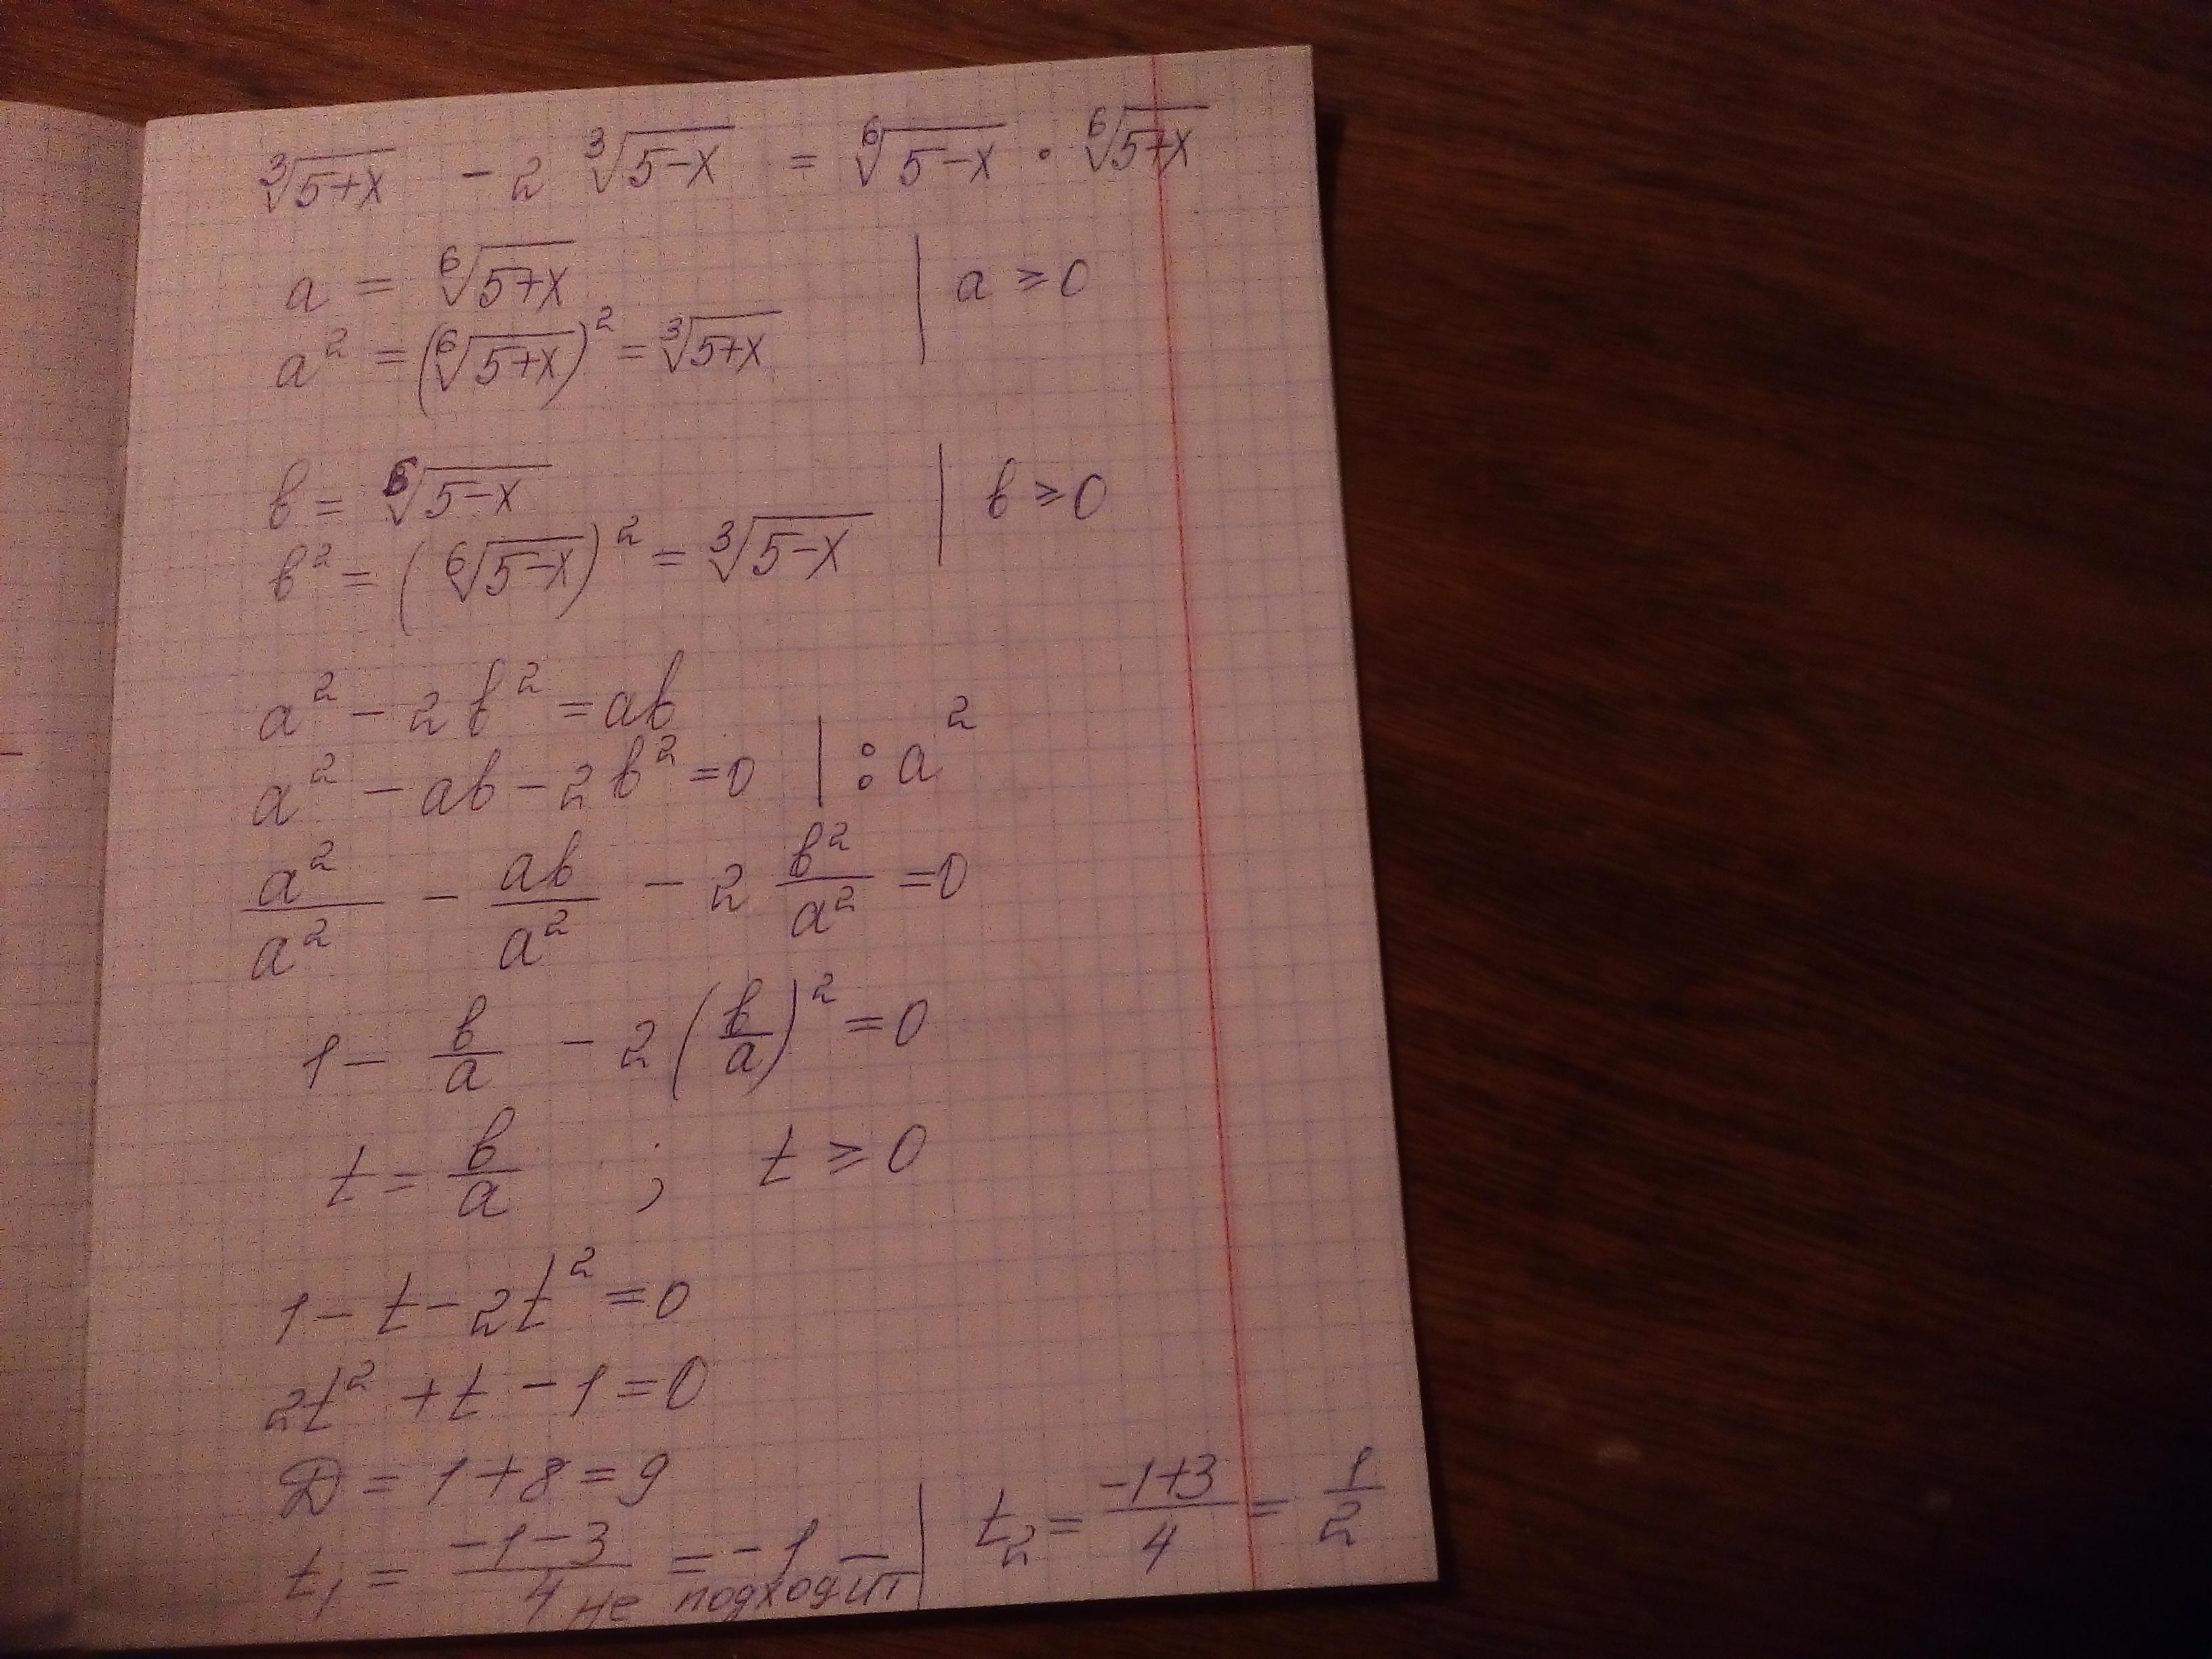 ∛(5+x) − 2 ∛(5−x) = ⁶√(5−x) · ⁶√(5+x)
a = ⁶√(5+x) | a ≥ 0
a² = (⁶√(5+x))² = ∛(5+x)
в = ⁶√(5−x) | в ≥ 0
в² = (⁶√(5−x))² = ∛(5−x)
a² − 2в² = aв
a² − aв − 2в² = 0 | : a²
a²/a² − aв/a² − 2 в²/a² = 0
1 − в/a − 2(в/a)² = 0
t = в/a ; t ≥ 0
1 − t − 2t² = 0
2t² + t − 1 = 0
D = 1 + 8 = 9
t₁ = (−1−3)/4 = −1 — не подходит | t₂ = (−1+3)/4 = 1/2